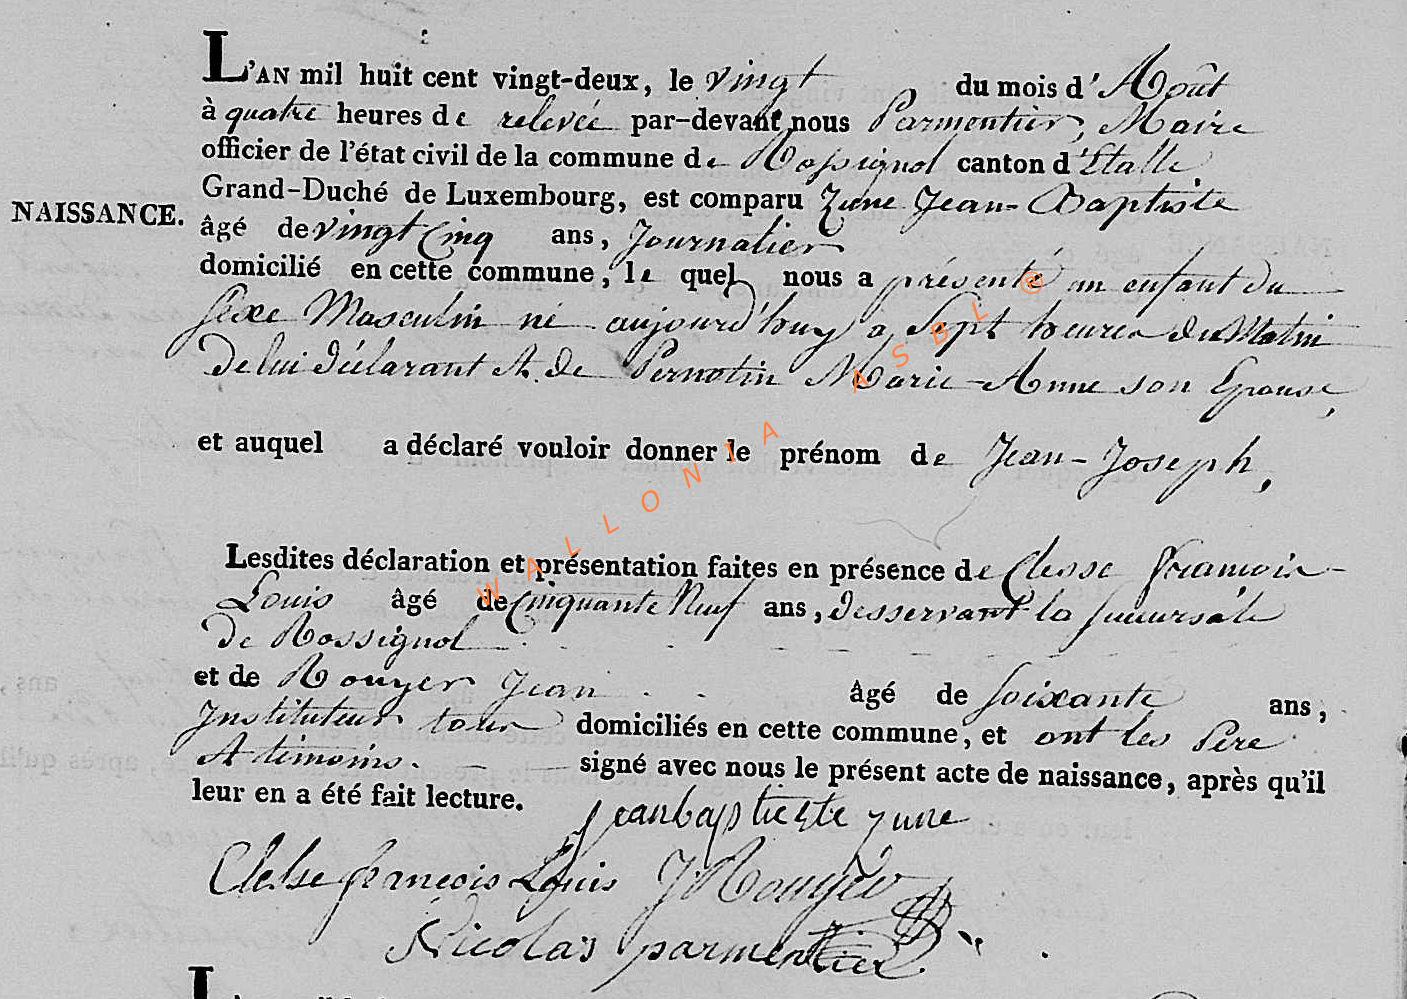 L'AN mil huit cent vingt-deux, le vingt du mois d'Août
à quatre heures de relevée par-devant nous Parmentier, Maire
officier de l'état civil de la commune de Rossignol canton d'Etalle
Grand-Duché de Luxembourg, est comparu Zune Jean-Baptiste
NAISSANCE.
âgé de vingt Cinq ans, Journalier
domicilié en cette commune, le quel nous a présenté un enfant du
sexe Masculin né aujourd'huy à Sept heures du Matin
de lui déclarant et de Pernotin Marie-Anne son Epouse,
et auquel a déclaré vouloir donner le prénom de Jean-Joseph,
Lesdites déclaration et présentation faites en présence de Clesse François-
Louis âgé de Cinquante Neuf ans, desservant la succursale
de Rossignol
et de Rouyer Jean âgé de soixante ans,
Instituteur tous domiciliés en cette commune, et ont les Père
et témoins. signé avec nous le présent acte de naissance, après qu'il
leur en a été fait lecture.
jean baptiste zune
Clesse françois Louis J Rouyer
Nicolas parmentier
WALLONIA ASBL ©